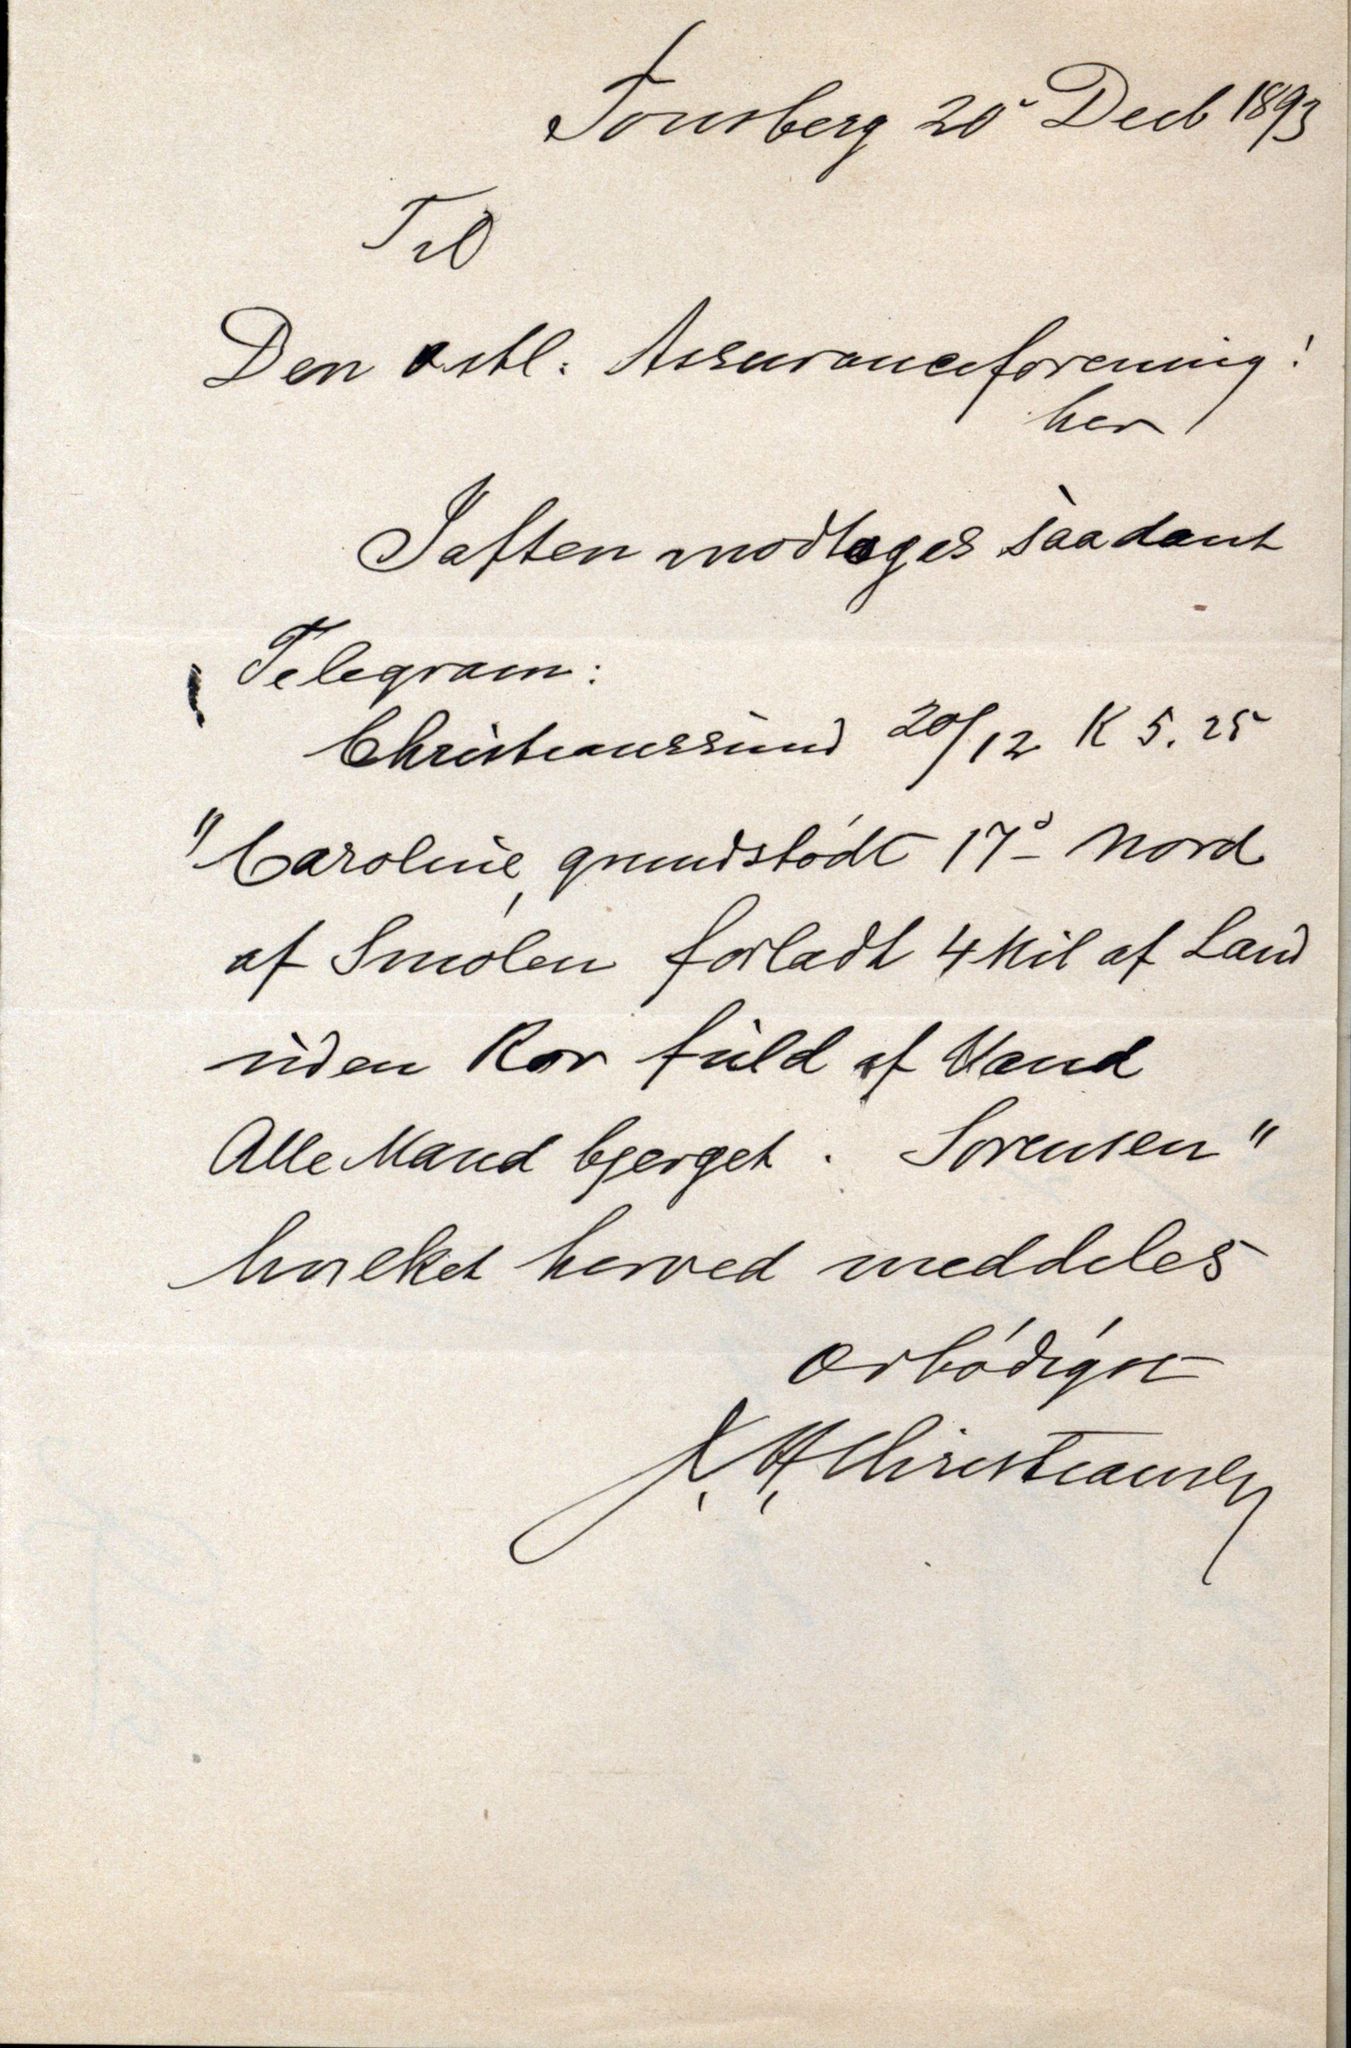 Tønsberg 20 Decb 1893
Til
Den østl: Assuranceforening!
her
Iaften modtoges saadant
Telegram:
Christianssund 20/12 K 5.25
"Caroline, grundstødt 17d Nord
af Smølen forladt 4 Mil af Land
uden Ror fuld af Vand
Alle Mand bjerget. Sørensen"
hvilket herved meddeles
ærbødigst
Christiansen